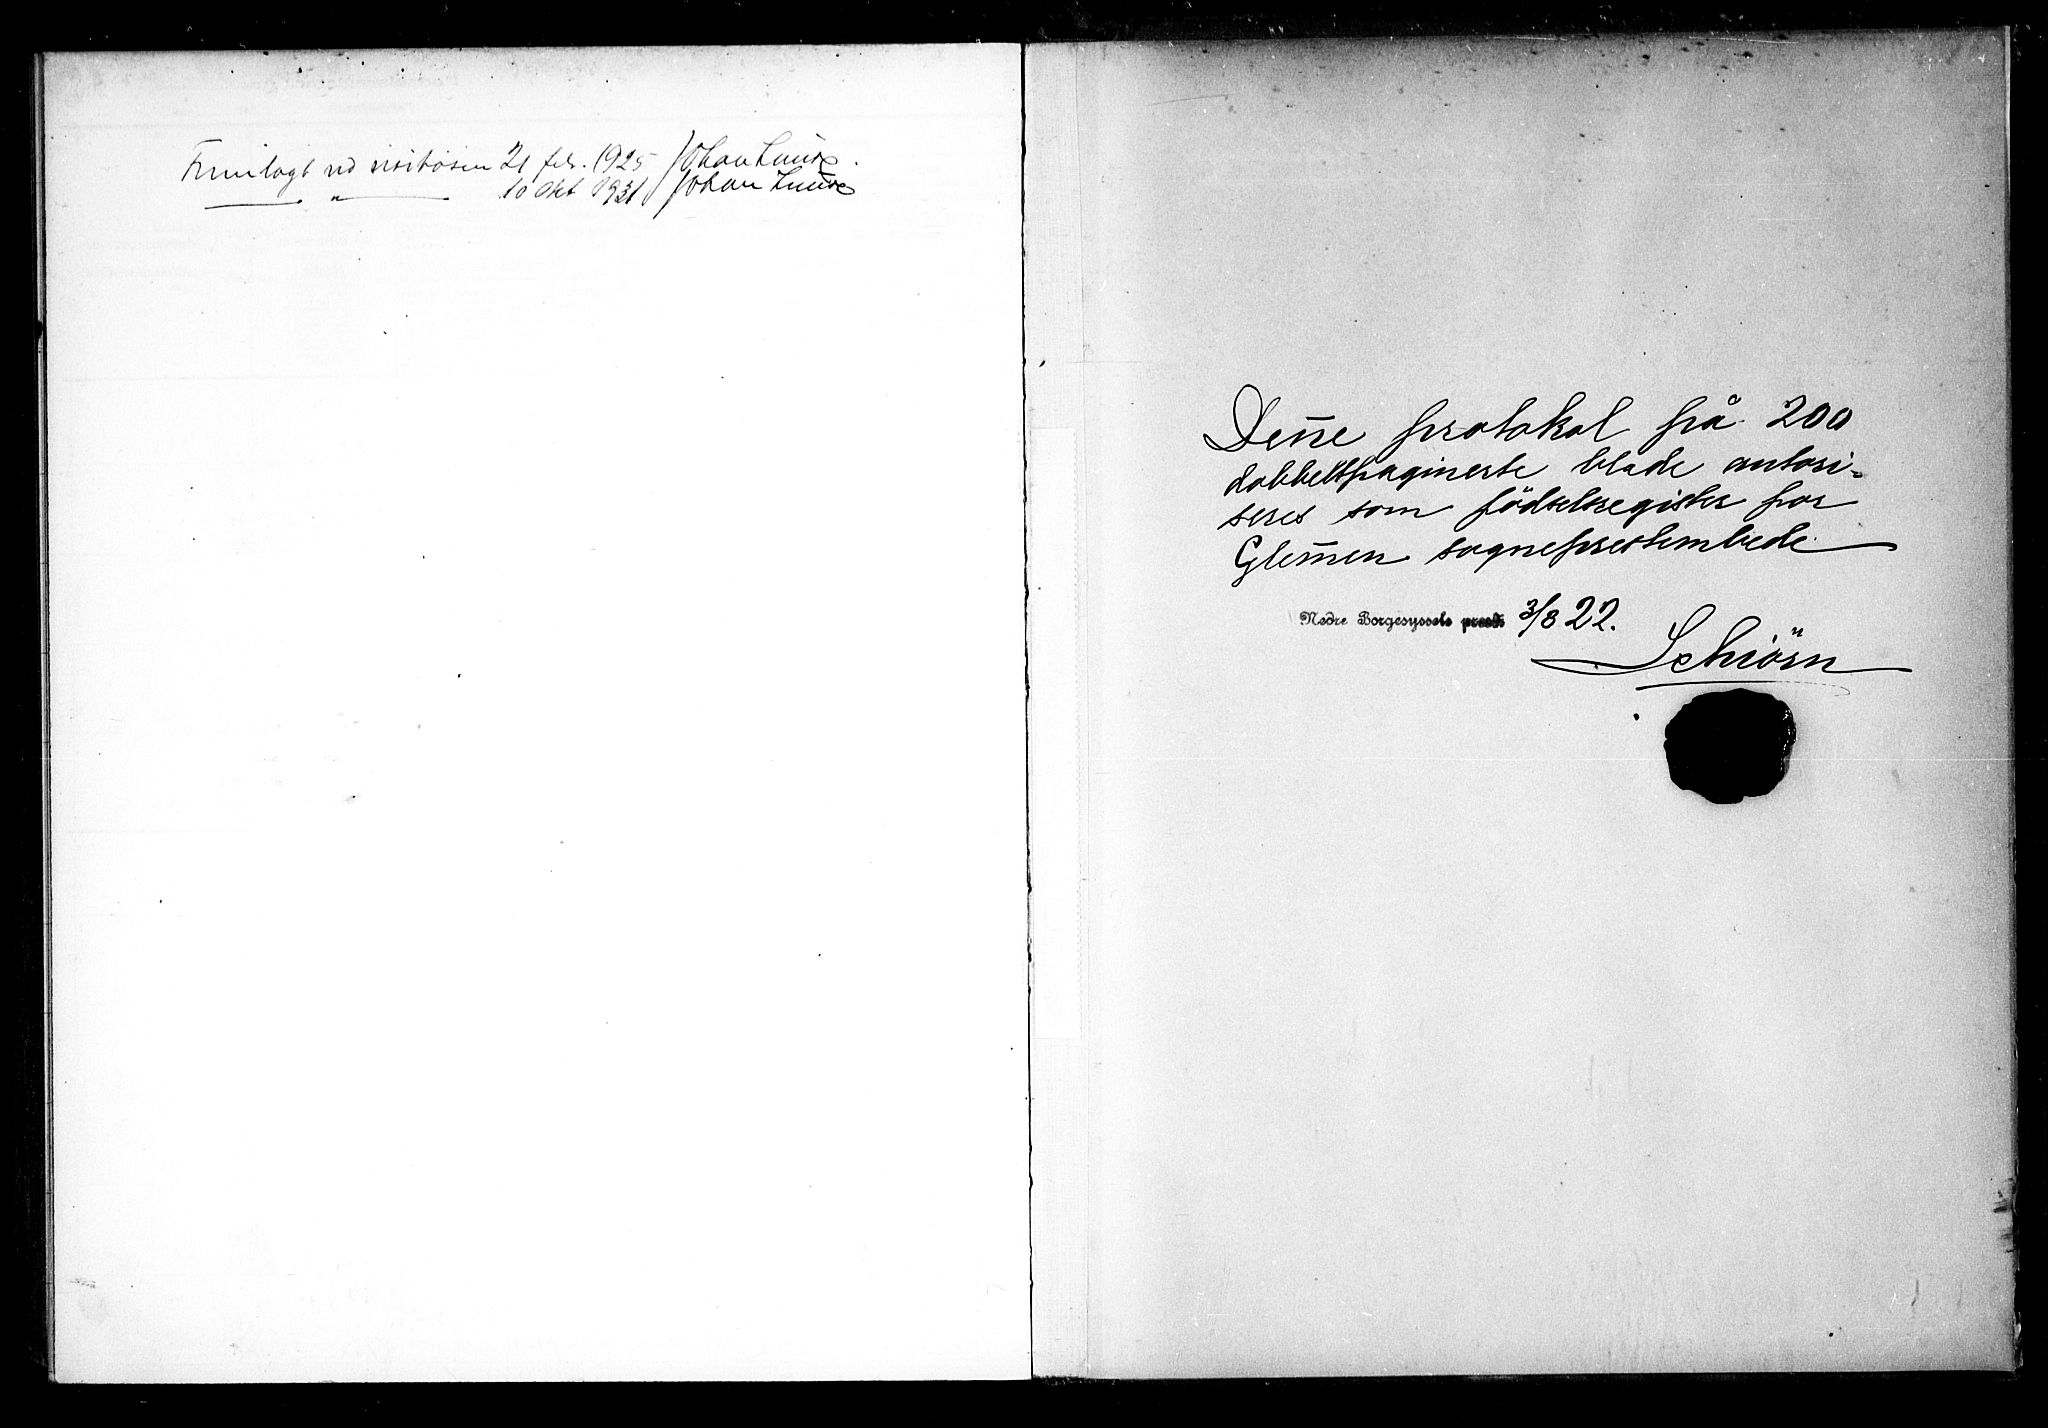 Fremlagt ved visitasen 21 feb. 1925 Johan Lunde.
— " — 10 Okt 1931 Johan Lunde
Denne protokol på 200
dobbeltpaginerte blade autori-
seres som fødselsregister for
Glemmen sogneprestembede.
Nedre Borgesyssels prosti 3/8 22.
Schiörn